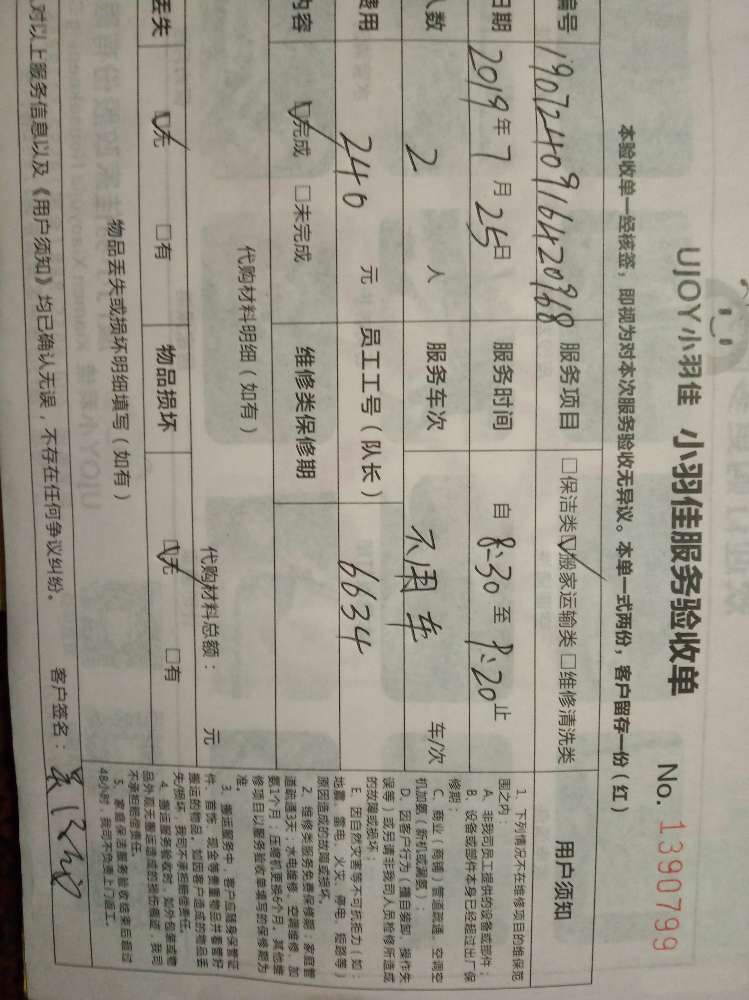 UJOY小羽佳 小羽佳服务验收单 No. 1390799
本验收单一经核签，即视为对本次服务验收无异议。本单一式两份，客户留存一份（红）
编号 1907240916420968 服务项目 □保洁类 ☑搬家运输类 □维修清洗类
日期 2019年7月25日 服务时间 自 8:30 至 9:20 止
人数 2 人 服务车次 不用车 车/次
费用 240 元 员工工号（队长） 6634
内容 ☑完成 □未完成 维修类保修期
代购材料明细（如有） 代购材料总额： 元
丢失 ☑无 □有 物品损坏 ☑无 □有
物品丢失或损坏明细填写（如有）
对以上服务信息以及《用户须知》均已确认无误，不存在任何争议纠纷。 客户签名：
用户须知
1、下列情况不在维修项目的维保范
围之内：
A、非我司员工提供的设备或部件；
B、设备或部件本身已经超过出厂保
修期；
C、商业（商铺）管道疏通、空调空
机加氨（新机或漏氨）；
D、因客户行为（擅自装卸、操作失
误等）或另请非我司人员检修所造成
的故障或损坏；
E、因自然灾害等不可抗拒力（如：
地震、雷电、火灾、停电、短路等）
原因造成的故障或损坏。
2、维修类服务免费保修期：家庭管
道疏通3天；水电维修、空调维修、加
氨1个月；压缩机更换6个月。其他维
修项目以服务验收单填写的保修期为
准。
3、搬运服务中，客户应随身保管证
件、首饰、现金等贵重物品并看管好
搬运的物品。如因客户造成的物品丢
失/损坏，我司不承担赔偿责任。
4、搬运服务验收时，如外包装或物
品外观无搬运造成的损伤痕迹，我司
不承担赔偿责任。
5、家庭保洁服务验收结束后超过
48小时，我司不负责上门返工。